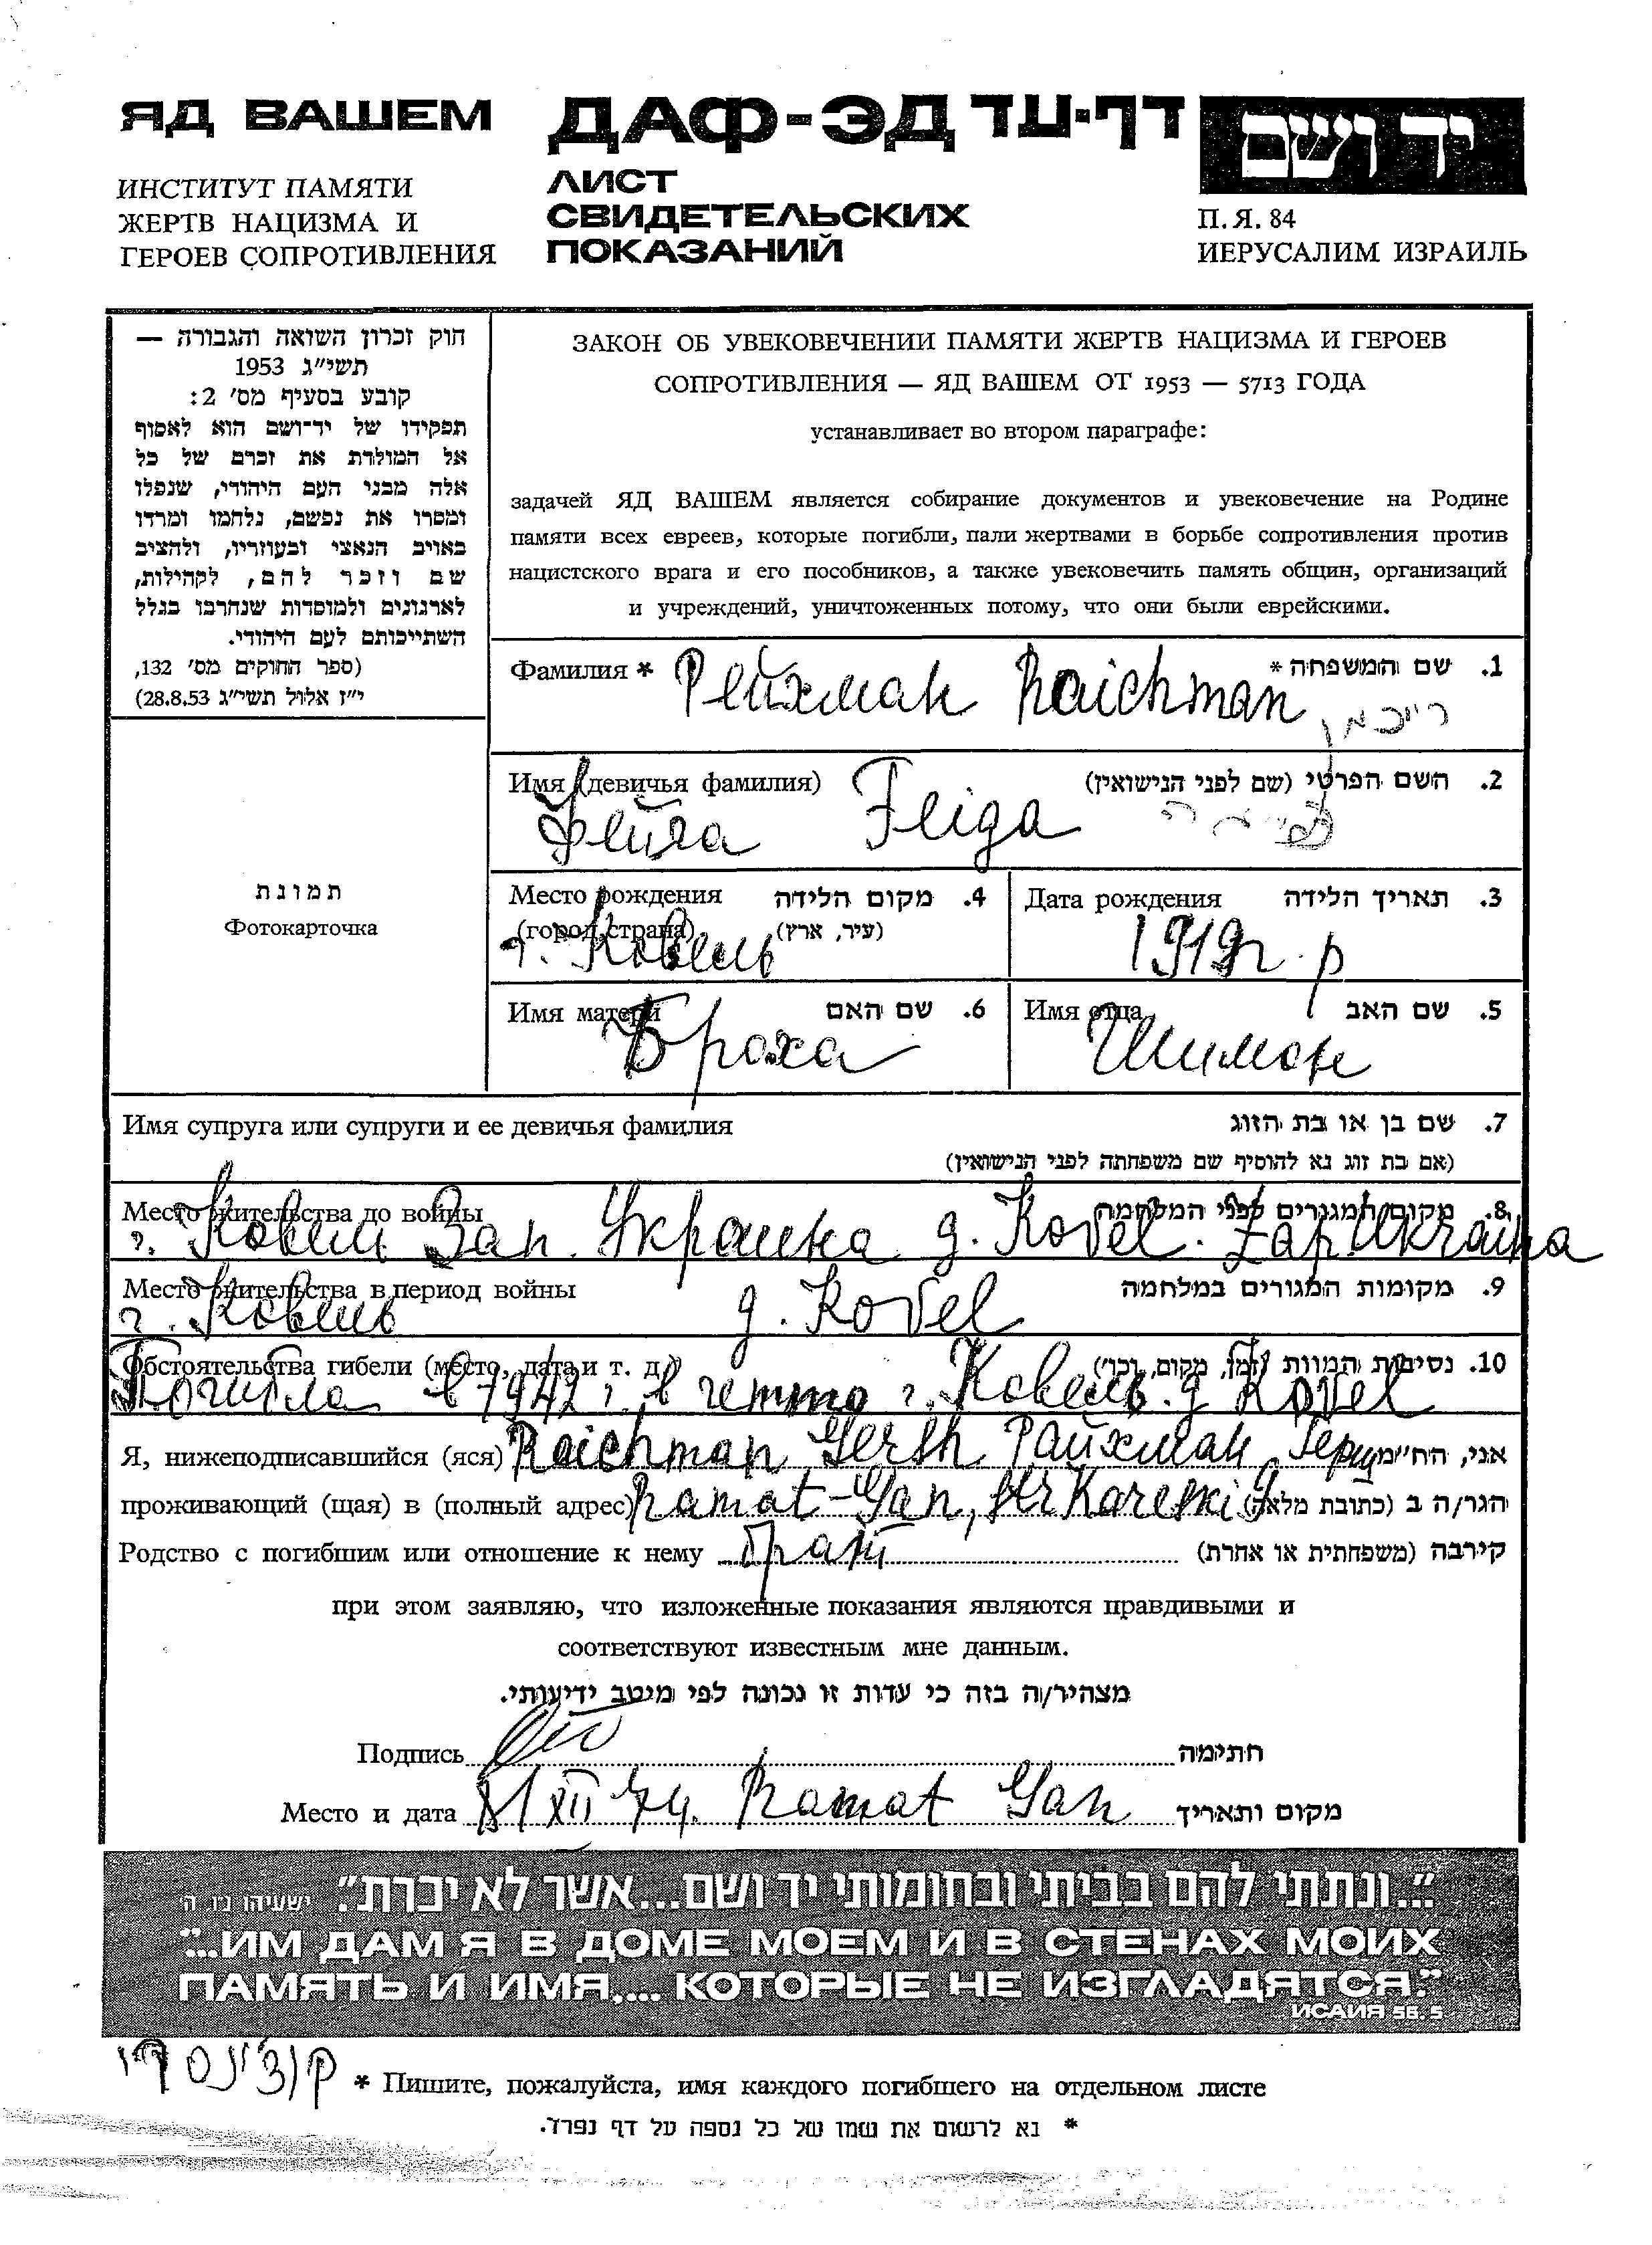 ЯД ВАШЕМ
ИНСТИТУТ ПАМЯТИ
ЖЕРТВ НАЦИЗМА И
ГЕРОЕВ СОПРОТИВЛЕНИЯ
ДАФ-ЭД דף-עד
ЛИСТ
СВИДЕТЕЛЬСКИХ
ПОКАЗАНИЙ
יד ושם
П. Я. 84
ИЕРУСАЛИМ ИЗРАИЛЬ
חוק זכרון השואה והגבורה —
תשי״ג 1953
קובע בסעיף מס׳ 2:
תפקידו של יד־ושם הוא לאסוף
אל המולדת את זכרם של כל
אלה מבני העם היהודי, שנפלו
ומסרו את נפשם, נלחמו ומרדו
באויב הנאצי ובעוזריו, ולהציב
שם וזכר להם, לקהילות,
לארגונים ולמוסדות שנחרבו בגלל
השתייכותם לעם היהודי.
(ספר החוקים מס׳ 132,
י״ז אלול תשי״ג 28.8.53)
ЗАКОН ОБ УВЕКОВЕЧЕНИИ ПАМЯТИ ЖЕРТВ НАЦИЗМА И ГЕРОЕВ
СОПРОТИВЛЕНИЯ — ЯД ВАШЕМ ОТ 1953 — 5713 ГОДА
устанавливает во втором параграфе:
задачей ЯД ВАШЕМ является собирание документов и увековечение на Родине
памяти всех евреев, которые погибли, пали жертвами в борьбе сопротивления против
нацистского врага и его пособников, а также увековечить память общин, организаций
и учреждений, уничтоженных потому, что они были еврейскими.
Фамилия * Рейхман Raichman 1. שם המשפחה *
רייכמן
Имя (девичья фамилия) 2. השם הפרטי (שם לפני הנישואין)
Фейга Feiga פייגה
תמונת
Фотокарточка
Место рождения 4. מקום הלידה
(город, страна) (עיר, ארץ)
г. Ковель
Дата рождения 3. תאריך הלידה
1919 г. р
Имя матери 6. שם האם
Броха
Имя отца 5. שם האב
Шимон
Имя супруга или супруги и ее девичья фамилия 7. שם בן או בת הזוג
(אם בת זוג נא להוסיף שם משפחתה לפני הנישואין)
Место жительства до войны 8. מקום המגורים לפני המלחמה
г. Ковель Зап. Украина g. Kovel. Zap. Ukraina
Место жительства в период войны 9. מקומות המגורים במלחמה
г. Ковель g. Kovel
Обстоятельства гибели (место, дата и т. д.) 10. נסיבות המוות (זמן, מקום, וכו׳)
Погибла в 1942 г. в гетто г. Ковель. g Kovel
Я, нижеподписавшийся (яся) Raichman Gersh Райхман Герш אני, הח״מ
проживающий (щая) в (полный адрес) Ramat-Gan, str Kareski 9 הגר/ה ב (כתובת מלאה)
Родство с погибшим или отношение к нему брат קירבה (משפחתית או אחרת)
при этом заявляю, что изложенные показания являются правдивыми и
соответствуют известным мне данным.
מצהיר/ה בזה כי עדות זו נכונה לפי מיטב ידיעותי.
Подпись חתימה
Место и дата 8/XII 74. Ramat Gan מקום ותאריך
״...ונתתי להם בביתי ובחומותי יד ושם...אשר לא יכרת״. ישעיהו נ״ו ה׳
"...ИМ ДАМ Я В ДОМЕ МОЕМ И В СТЕНАХ МОИХ
ПАМЯТЬ И ИМЯ.... КОТОРЫЕ НЕ ИЗГЛАДЯТСЯ."
ИСАИЯ 56. 5
* Пишите, пожалуйста, имя каждого погибшего на отдельном листе
* נא לרשום את שמו של כל נספה על דף נפרד.